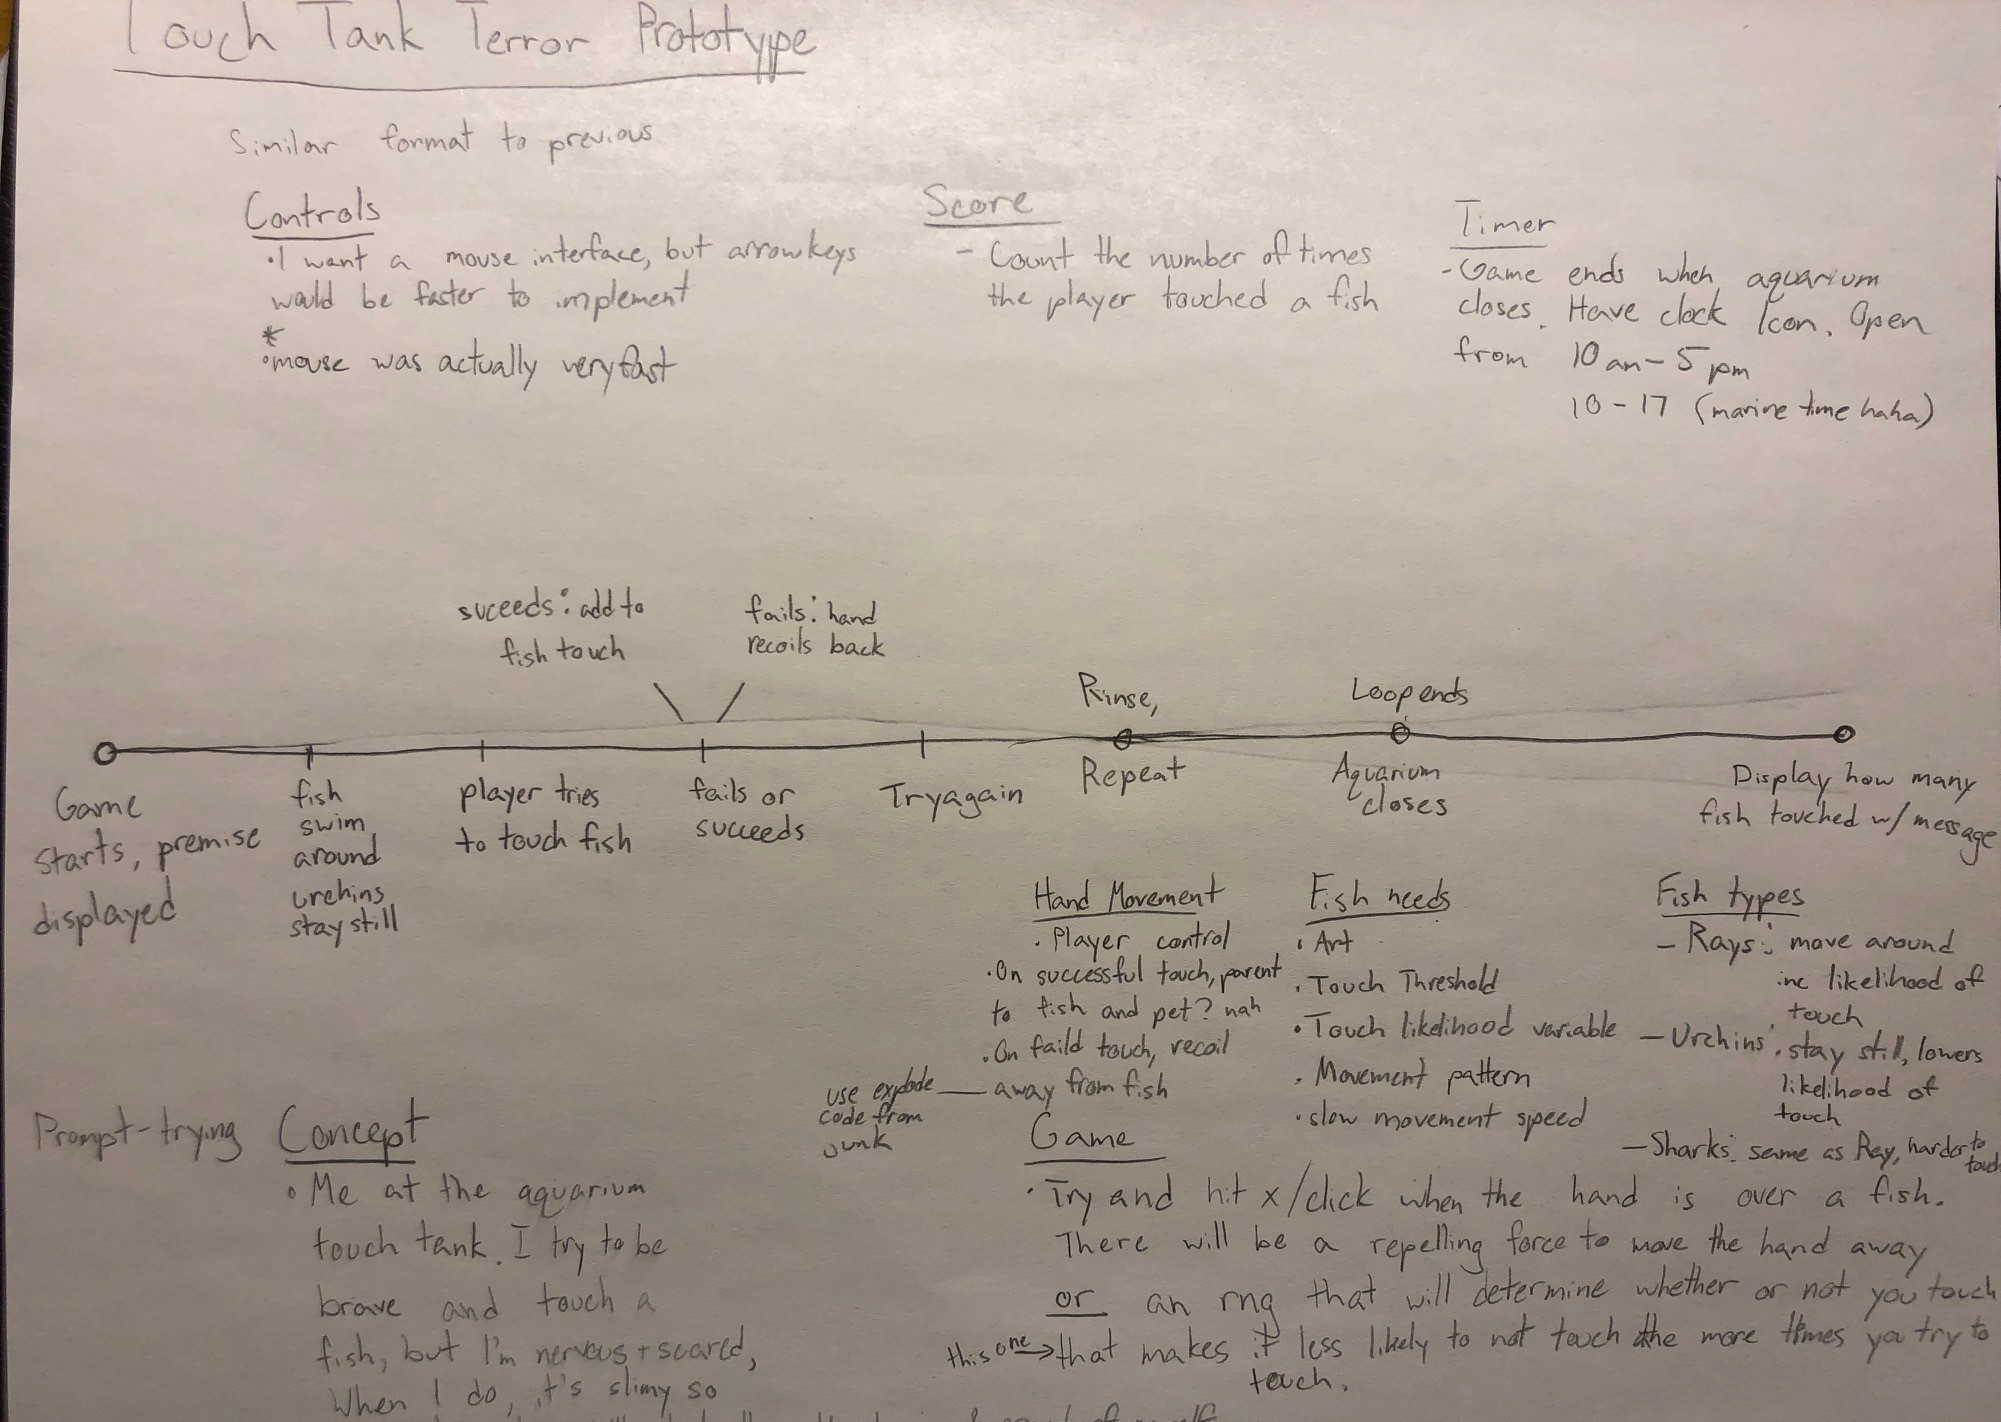 Touch Tank Terror Prototype
Similar format to previous
Controls
• I want a mouse interface, but arrowkeys
would be faster to implement
*
• mouse was actually very fast
Score
- Count the number of times
the player touched a fish
Timer
- Game ends when aquarium
closes. Have clock Icon. Open
from 10 am - 5 pm
10 - 17 (marine time haha)
suceeds: add to
fish touch
fails: hand
recoils back
Rinse,
Repeat
Loop ends
Aquarium
closes
Game
starts, premise
displayed
fish
swim
around
urchins
stay still
player tries
to touch fish
fails or
succeeds
Try again
Display how many
fish touched w/ message
Hand Movement
• Player control
• On successful touch, parent
to fish and pet? nah
• On faild touch, recoil
away from fish
use explode
code from
junk
Fish needs
• Art
• Touch Threshold
• Touch likelihood variable
• Movement pattern
• slow movement speed
Fish types
- Rays: move around
inc likelihood of
touch
- Urchins: stay still, lowers
likelihood of
touch
- Sharks: same as Ray, harder to
touch
Prompt - trying
Concept
• Me at the aquarium
touch tank. I try to be
brave and touch a
fish, but I'm nervous + scared,
When I do, it's slimy so
Game
• Try and hit x/click when the hand is over a fish.
There will be a repelling force to move the hand away
or an rng that will determine whether or not you touch
this one → that makes it less likely to not touch the more times you try to
touch.